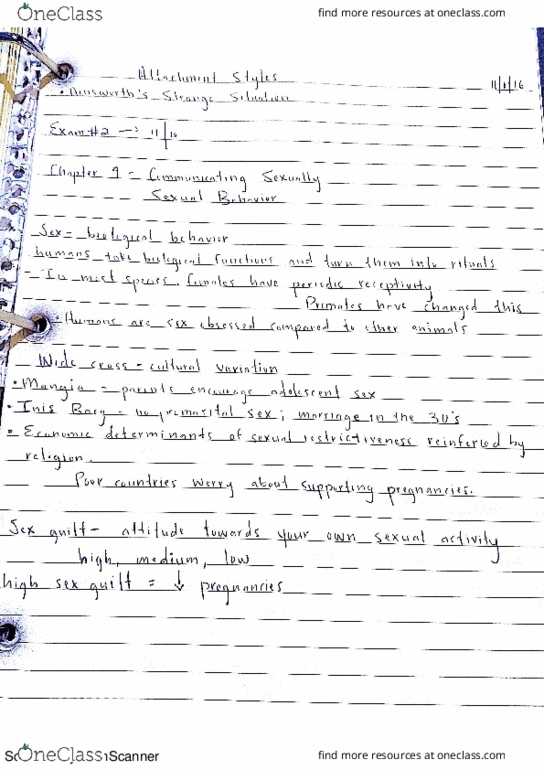 OneClass
find more resources at oneclass.com
Attachment Styles
11/1/16
• Ainsworth's Strange Situation
Exam #2 → 11/10
Chapter 9 - Communicating Sexually
Sexual Behavior
Sex - biological behavior
humans take biological functions and turn them into rituals
- In most species, females have periodic receptivity
Primates have changed this
- Humans are sex obsessed compared to other animals
Wide cross-cultural variation
• Mangia - parents encourage adolescent sex
• Inis Baeg - no premarital sex; marriage in the 30's
• Economic determinants of sexual restrictiveness reinforced by
religion.
Poor countries worry about supporting pregnancies.
Sex guilt - attitude towards your own sexual activity
high, medium, low
high sex guilt = ↓ pregnancies
OneClass
Scanner
find more resources at oneclass.com